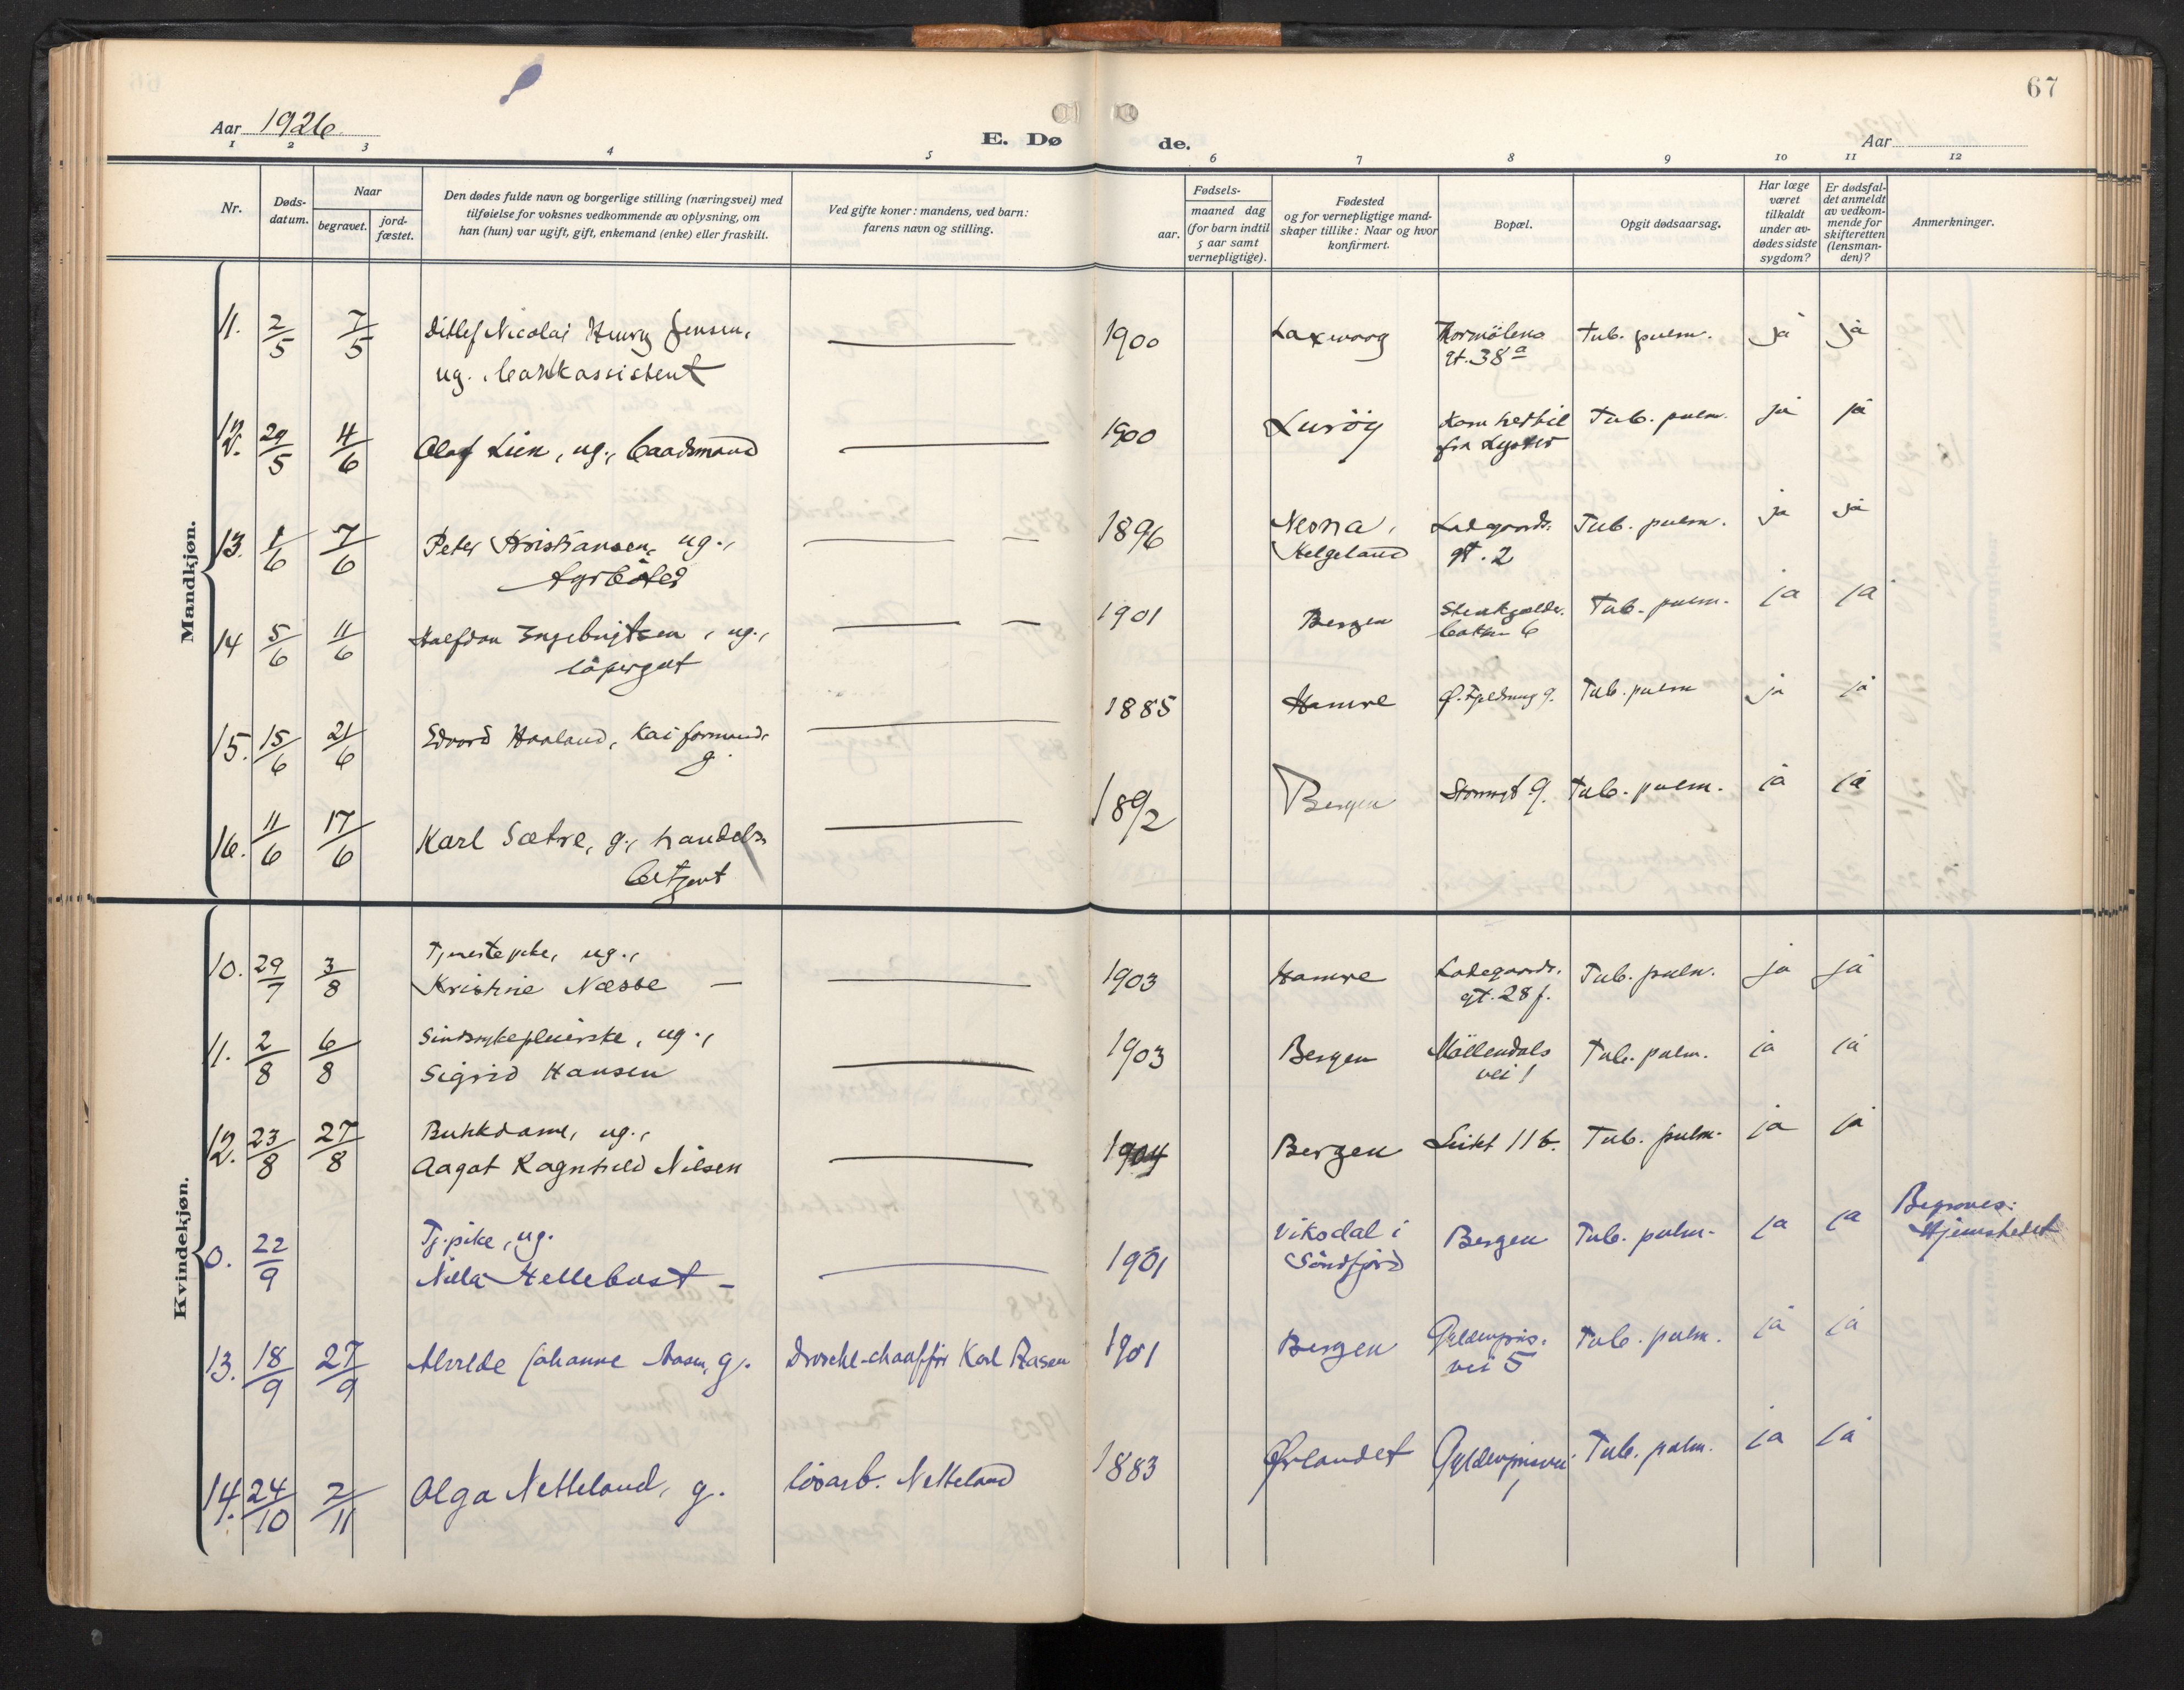 67
Aar 1926
E. Dø
de.
Aar
1 2 3 4 5 6 7 8 9 10 11 12
Nr.
Døds-
datum.
Naar
begravet.
jord-
fæstet.
Den dødes fulde navn og borgerlige stilling (næringsvei) med
tilføielse for voksnes vedkommende av oplysning, om
han (hun) var ugift, gift, enkemand (enke) eller fraskilt.
Ved gifte koner: mandens, ved barn:
farens navn og stilling.
Fødsels-
aar.
maaned dag
(for barn indtil
5 aar samt
vernepligtige).
Fødested
og for vernepligtige mand-
skaper tillike: Naar og hvor
konfirmert.
Bopæl.
Opgit dødsaarsag.
Har læge
været
tilkaldt
under av-
dødes sidste
sygdom?
Er dødsfal-
det anmeldt
av vedkom-
mende for
skifteretten
(lensman-
den)?
Anmerkninger.
Mandkjøn.
11. 2/5 7/5 Ditlef Nicolai Henry Jensen, — 1900 Laxevaag Thormölens Tub. pulm. ja ja
ug. bankassistent gt. 38 a
12. 29/5 4/6 Olaf Lien, ug., baadsmand — 1900 Luröy Kom hertil Tub. pulm. ja ja
fra Lyster
13. 1/6 7/6 Peter Kristiansen, ug., — — 1896 Nesna, Ladegaards. Tub. pulm. ja ja
fyrböter Helgeland gt. 2
14 5/6 11/6 Halfdan Ingebrigtsen, ug., — — 1901 Bergen Stenkjelder. Tub. pulm. ja ja
löpergut bakken 6
15. 15/6 21/6 Edvard Haaland, Kaiformand, — 1885 Hamre Tub. pulm ja ja
g.
16. 11/6 17/6 Karl Sætre, g., handels — 1892 Bergen 9. Tub. pulm. ja ja
betjent
Kvindekjøn.
10. 29/7 3/8 Tjenestepike, ug.,
Kristine Næsse — — 1903 Hamre Ladegaards. Tub. pulm. ja ja
gt. 28 f.
11. 2/8 6/8 Sindssykepleierske, ug.,
Sigrid Hansen — 1903 Bergen Möllendals Tub. pulm. ja ja
vei 1
12. 23/8 27/8 ug.,
Aagot Ragnhild Nilsen — 1904 Bergen 11 b. Tub. pulm. ja ja
0. 22/9 Tj.pike, ug.
Hellebust — — 1901 Viksdal i Bergen Tub. pulm. ja ja Begraves:
Söndfjord Hjemstedet
13. 18/9 27/9 Alvilde Johanne Aasen, g. Drosche-chaufför Karl Aasen 1901 Bergen Gyldenpris. Tub. pulm. ja ja
vei 5
14. 24/10 2/11 Olga Netteland, g. lösarb. Netteland 1883 Ørlandet Gyldenprisvei Tub. pulm. ja ja
1